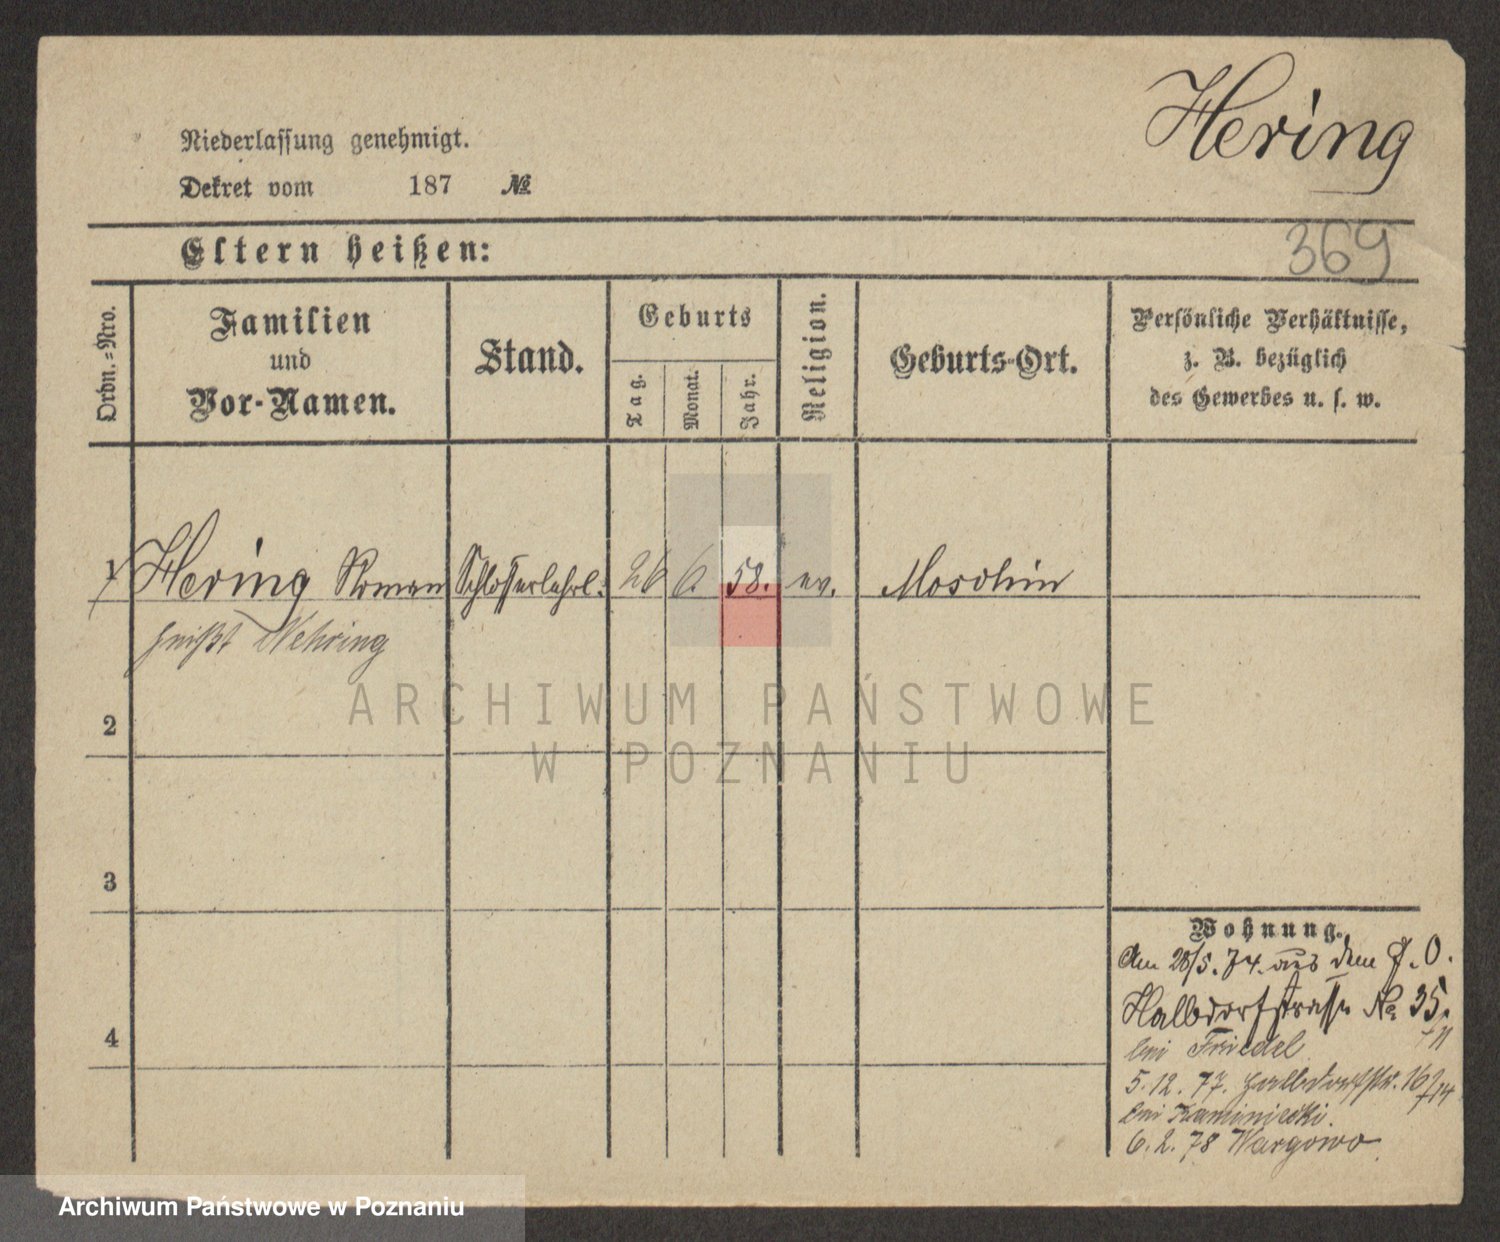 Hering
Niederlassung genehmigt.
Dekret vom 187 №
369
Eltern heißen:
Ordn.=Nro.
Familien
und
Vor-Namen.
Stand.
Geburts
Tag.
Monat.
Jahr.
Religion.
Geburts-Ort.
Persönliche Verhältnisse,
z. B. bezüglich
des Gewerbes u. s. w.
1 Hering Roman Schlosserlehrl. 26 6. 58. ev. Moschin
heißt Nehring
2
3
4
Wohnung.
Am 28/5. 74. aus dem
Halbdorfstrasse No 35.
bei Friedel
5. 12. 77. Halbdorfstr. 16
bei Kaminiecki.
6. 2. 78 Wargowo
ARCHIWUM PAŃSTWOWE
W POZNANIU
Archiwum Państwowe w Poznaniu